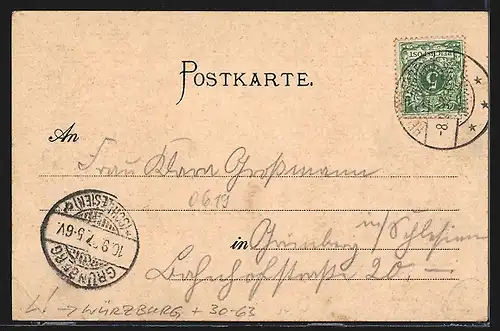 POSTKARTE.
5
8-
An
Frau Klara Großmann
0619
in Grünberg n/Schlesien
Bahnhofstraße 20.—
GRÜNBERG
(SCHLESIEN)
10.9. 97. 5-6V.
→ WÜRZBURG + 30-63